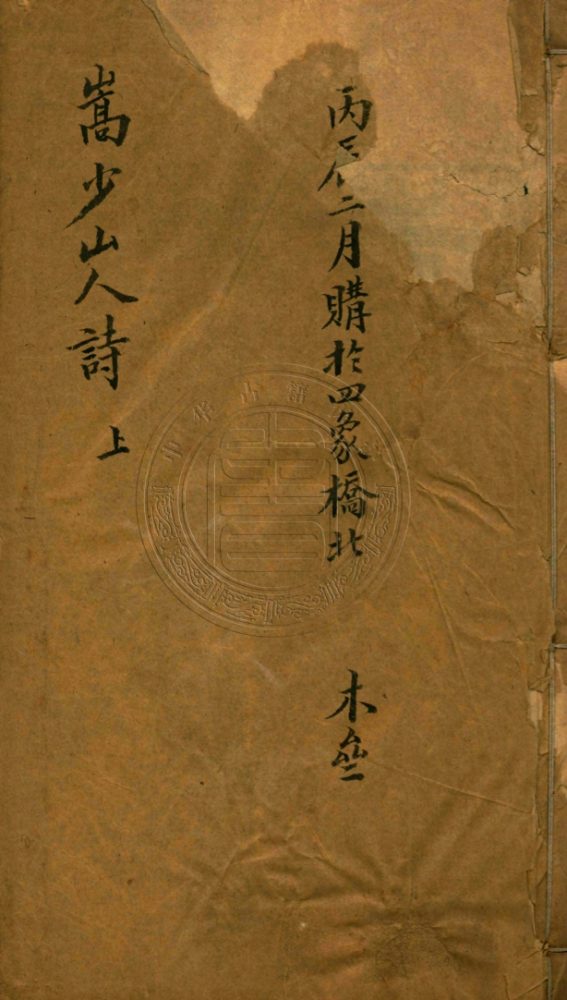 丙辰二月購於四象橋北
木
嵩少山人詩 上